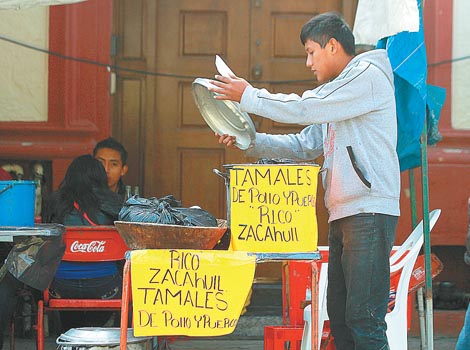 TAMALES
DE POllO Y PUERCO
"RICO"
ZACAHUIL
Coca-Cola
RICO
ZACAHUIL
TAMALES
DE POllO Y PUERCO